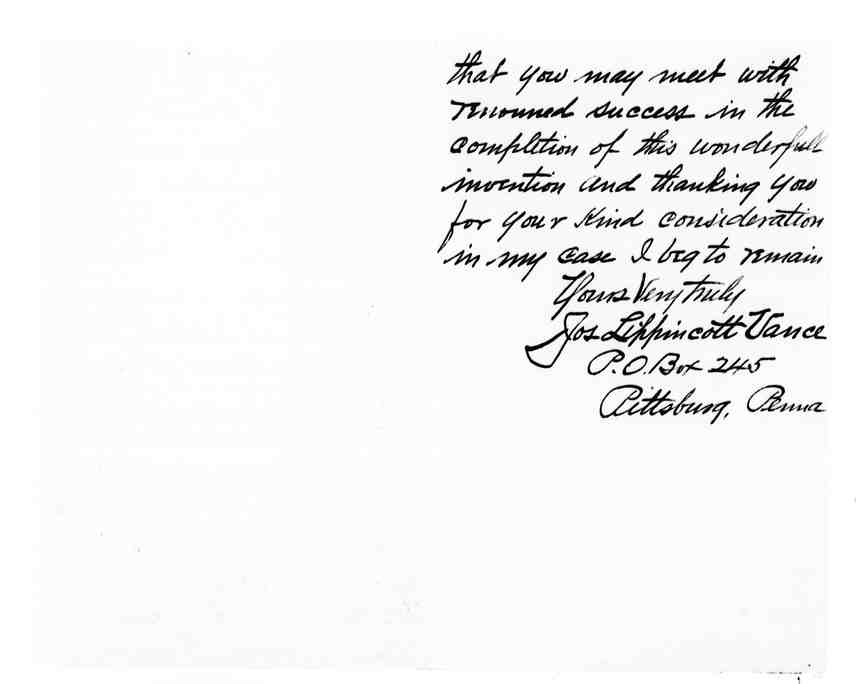 that you may meet with
renouned success in the
completion of this wonderfull
invention and thanking you
for your Kind consideration
in my case I beg to remain
Yours Very truly
Jos Lippincott Vance
P.O. Box 245
Pittsburg, Penna